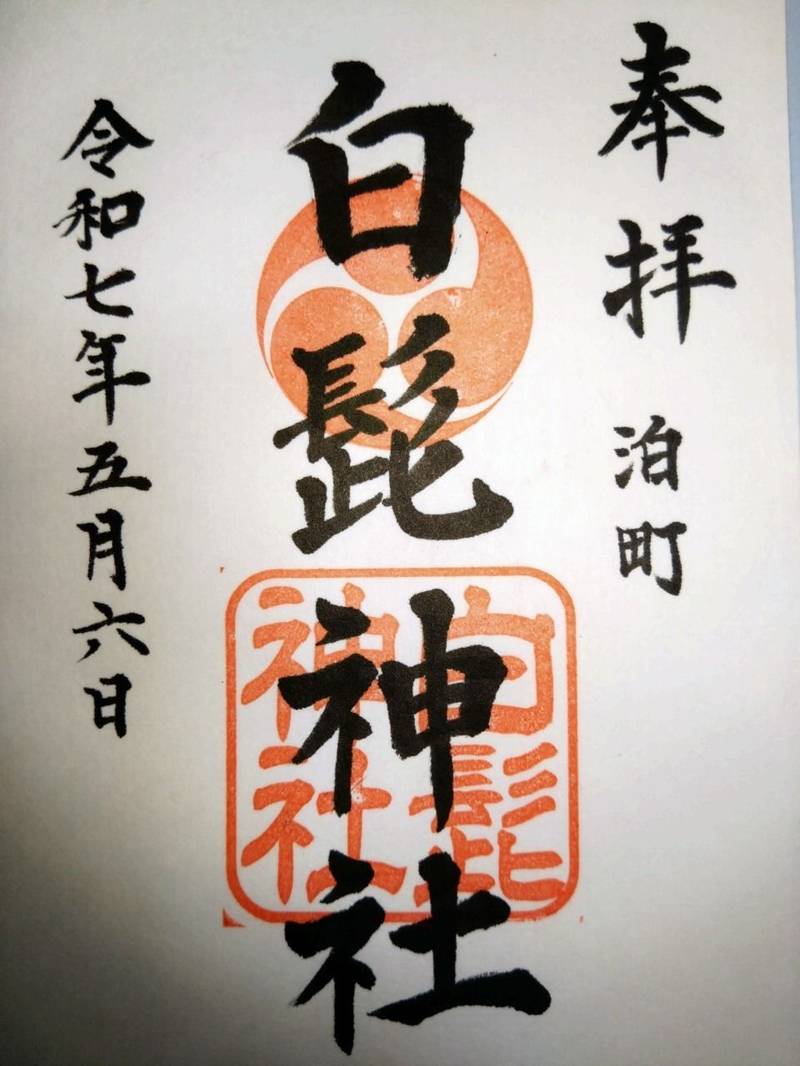 奉拝 泊町
白髭神社
白髭
神社
令和七年五月六日